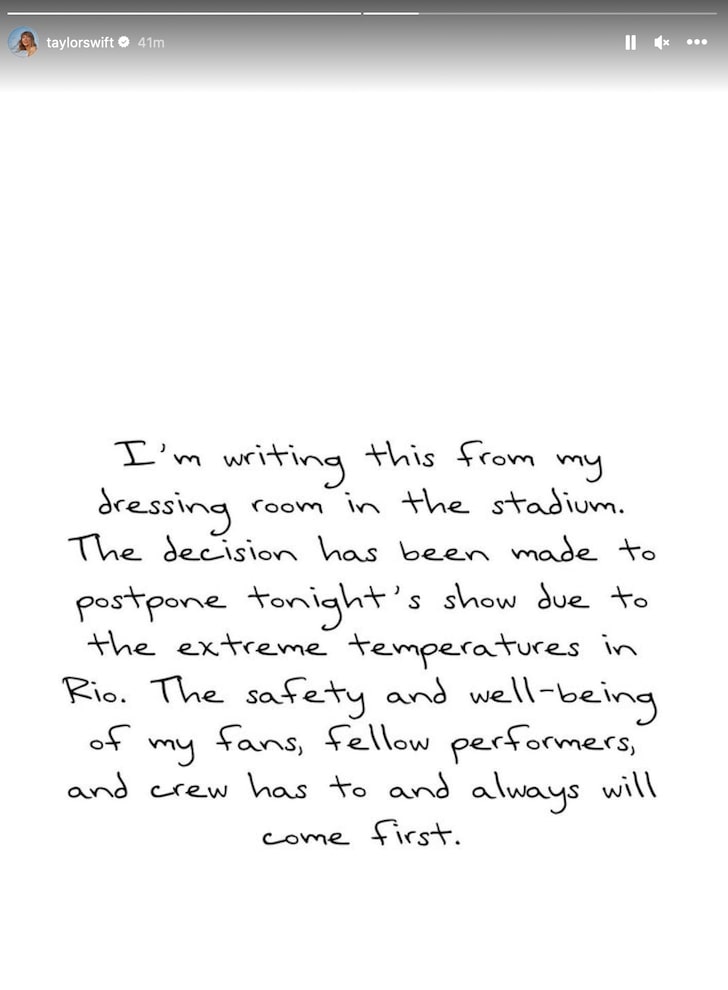 taylorswift 41m
I'm writing this from my
dressing room in the stadium.
The decision has been made to
postpone tonight's show due to
the extreme temperatures in
Rio. The safety and well-being
of my fans, fellow performers,
and crew has to and always will
come first.